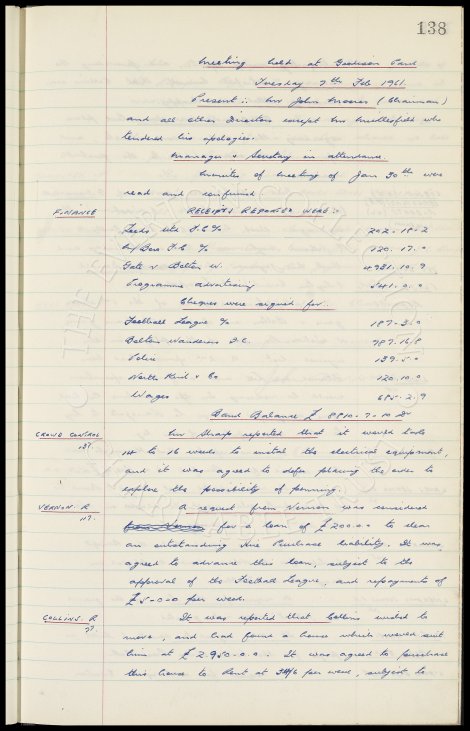 138
Meeting held at Goodison Park
Tuesday 7th Feb 1961.
Present :- Mr John Moores (Chairman)
and all other Directors except Mr Micklesfield who
tendered his apologies.
Manager & Secretary in attendance.
Minutes of meeting of Jan 30th were
read and confirmed
FINANCE RECEIPTS REPORTED WERE :-
Leeds Utd F.C. %  202-18-2
F.C. %  120.17.0
Gate v Bolton W.  4921.10.9
Programme advertising  541.0.0
Cheques were signed for.
Football League %  187-3.0
Bolton Wanderers F.C.  787.16/8
Police  139.5.0
North Kent & Co  120.10.0
Wages  685-2.9
Bank Balance £ 8810-7-10 Dr
CROWD CONTROL Mr Sharp reported that it would take
137. 14 to 16 weeks to install the electrical equipment,
and it was agreed to defer placing the order to
explore the possibility of
VERNON. R A request from Vernon was considered
117. from Vernon for a loan of £200.0.0 to clear
an outstanding Hire Purchase liability. It was
agreed to advance this loan, subject to the
approval of the Football League, and repayments of
£5-0-0 per week.
COLLINS. R It was reported that Collins wished to
77 move, and had found a house which would suit
him at £2950-0.0. It was agreed to purchase
this house to rent at per week, subject to